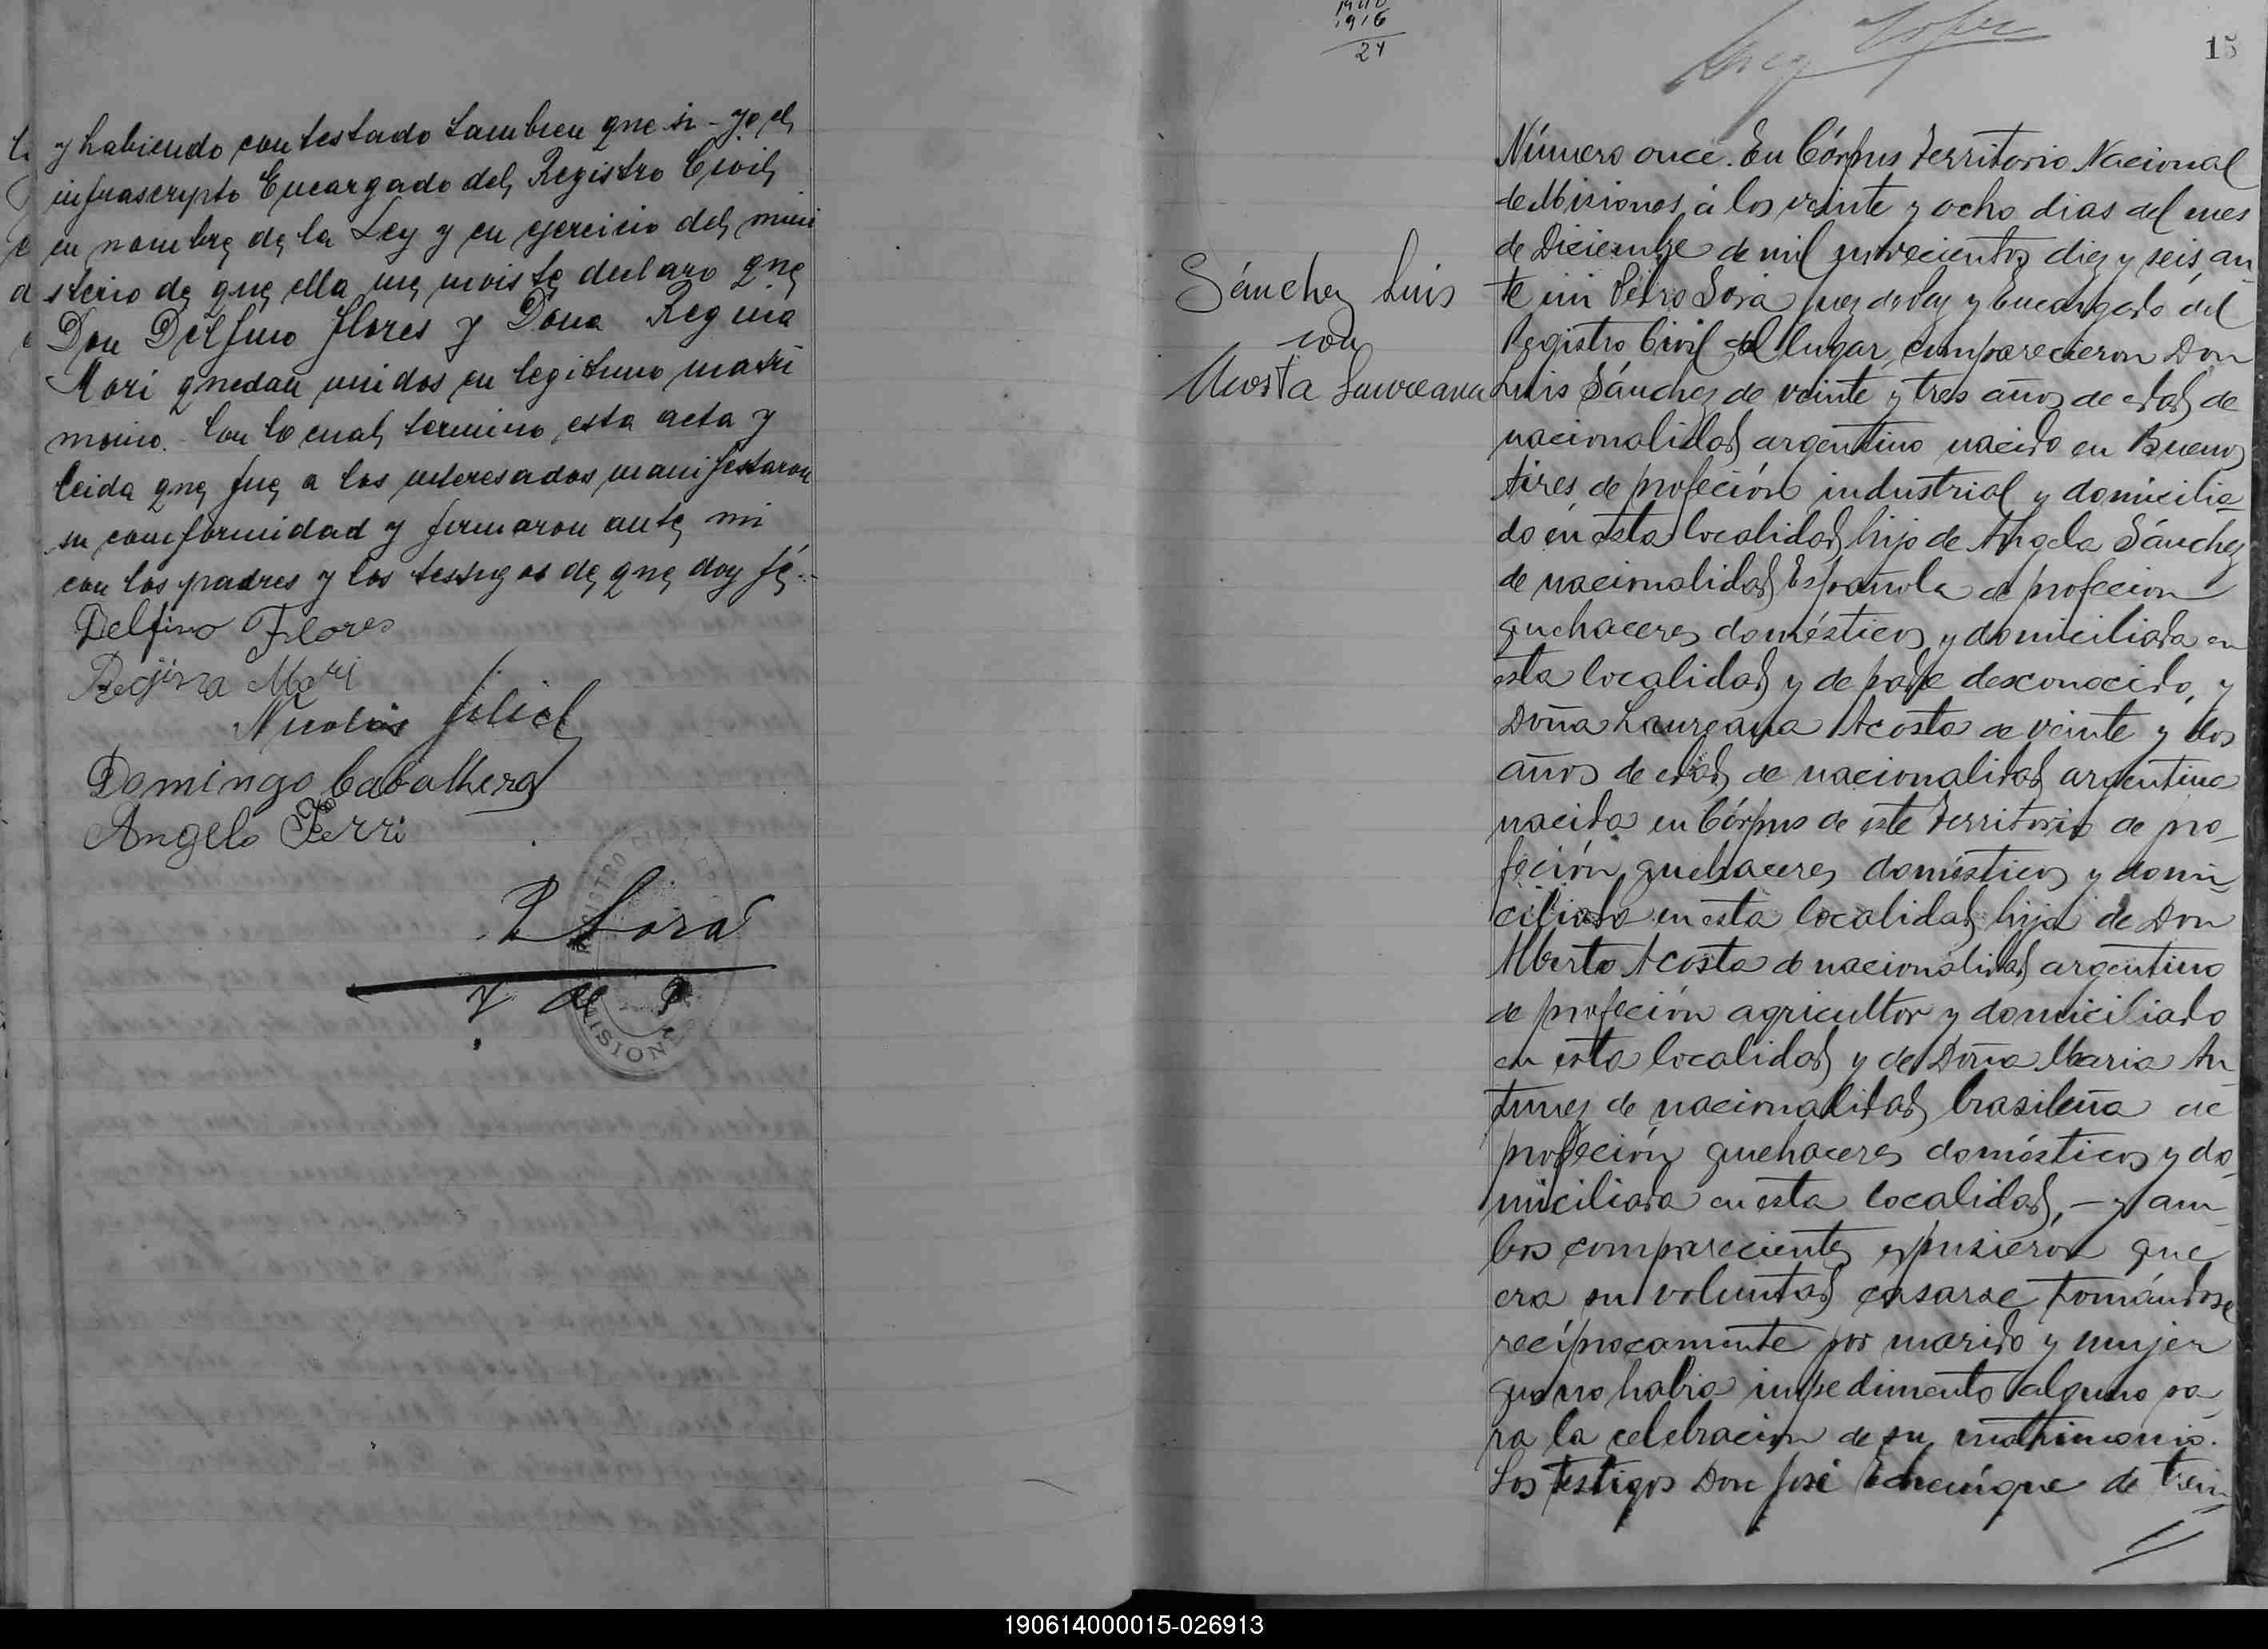 y habiendo contestado tambien que si - yo el
infrascripto Encargado del Registro Civil
en nombre de la Ley y en ejercicio del mini
sterio de que ella me inviste declaro que
Don Delfino Flores y Doña Regina
Mori quedan unidos en legitimo matri
monio. Con lo cual termino esta acta y
leida que fue a los interesados manifestaron
su conformidad y firmaron ante mi
con los padres y los testigos de que doy fé.
Delfino Flores
Regina Mori
Nicolás
Domingo Caballhero
Angelo Ferri
P Sosa
REGISTRO CIVIL
MISIONES
J de P
1916
24
15
Sánchez Luis
con
Acosta Laureana
Número once. En Córpus Territorio Nacional
de Misiones á los veinte y ocho dias del mes
de Diciembre de mil novecientos diez y seis, an-
te mi Pedro Sosa Juez de Paz y Encargado del
Registro Civil del lugar, comparecieron Don
Luis Sánchez de veinte y tres años de edad de
nacionalidad argentino nacido en Buenos
Aires de profeción industrial y domicilia-
do en esta localidad hijo de Angela Sánchez
de nacionalidad Española de profecion
quehaceres domésticos y domiciliada en
esta localidad y de padre desconocido, y
Doña Laureana Acosta de veinte y dos
años de edad de nacionalidad argentina
nacida en Córpus de este Territorio de pro-
feción quehaceres domésticos y domi-
ciliada en esta localidad hija de Don
Alberto Acosta de nacionalidad argentino
de profeción agricultor y domiciliado
en esta localidad y de Doña Maria An-
tunez de nacionalidad brasileña de
profeción quehaceres domésticos y do-
miciliada en esta localidad, - y am-
bos comparecientes espusieron que
era su voluntad casarse tomándose
recíprocamente por marido y mujer
que no habia impedimento alguno pa-
ra la celebracion de su matrimonio.
Los testigos Don José Echenique de trein-